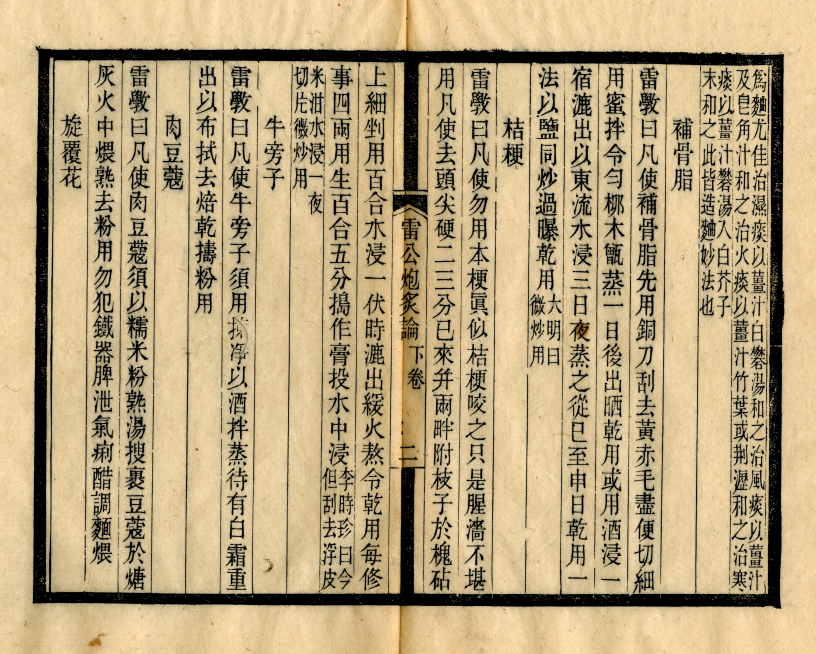 為麯尤佳治濕痰以薑汁白礬湯和之治風痰以薑汁
及皂角汁和之治火痰以薑汁竹葉或荆瀝和之治寒
痰以薑汁礬湯入白芥子
末和之此皆造麯妙法也
補骨脂
雷斆曰凡使補骨脂先用銅刀刮去黃赤毛盡便切細
用蜜拌令勻柳木甑蒸一日後出晒乾用或用酒浸一
宿漉出以東流水浸三日夜蒸之從巳至申日乾用一
法以鹽同炒過曝乾用
大明曰
微炒用
桔梗
雷斆曰凡使勿用本梗眞似桔梗咬之只是腥濇不堪
用凡使去頭尖硬二三分已來幷兩畔附枝子於槐砧
雷公炮炙論 下卷 二
上細剉用百合水浸一伏時漉出緩火熬令乾用每修
事四兩用生百合五分搗作膏投水中浸
李時珍曰今
但刮去浮皮
米泔水浸一夜
切片微炒用
牛旁子
雷斆曰凡使牛旁子須用揀淨以酒拌蒸待有白霜重
出以布拭去焙乾擣粉用
肉豆蔻
雷斆曰凡使肉豆蔻須以糯米粉熟湯搜裹豆蔻於煻
灰火中煨熟去粉用勿犯鐵器脾泄氣痢醋調麵煨
旋覆花